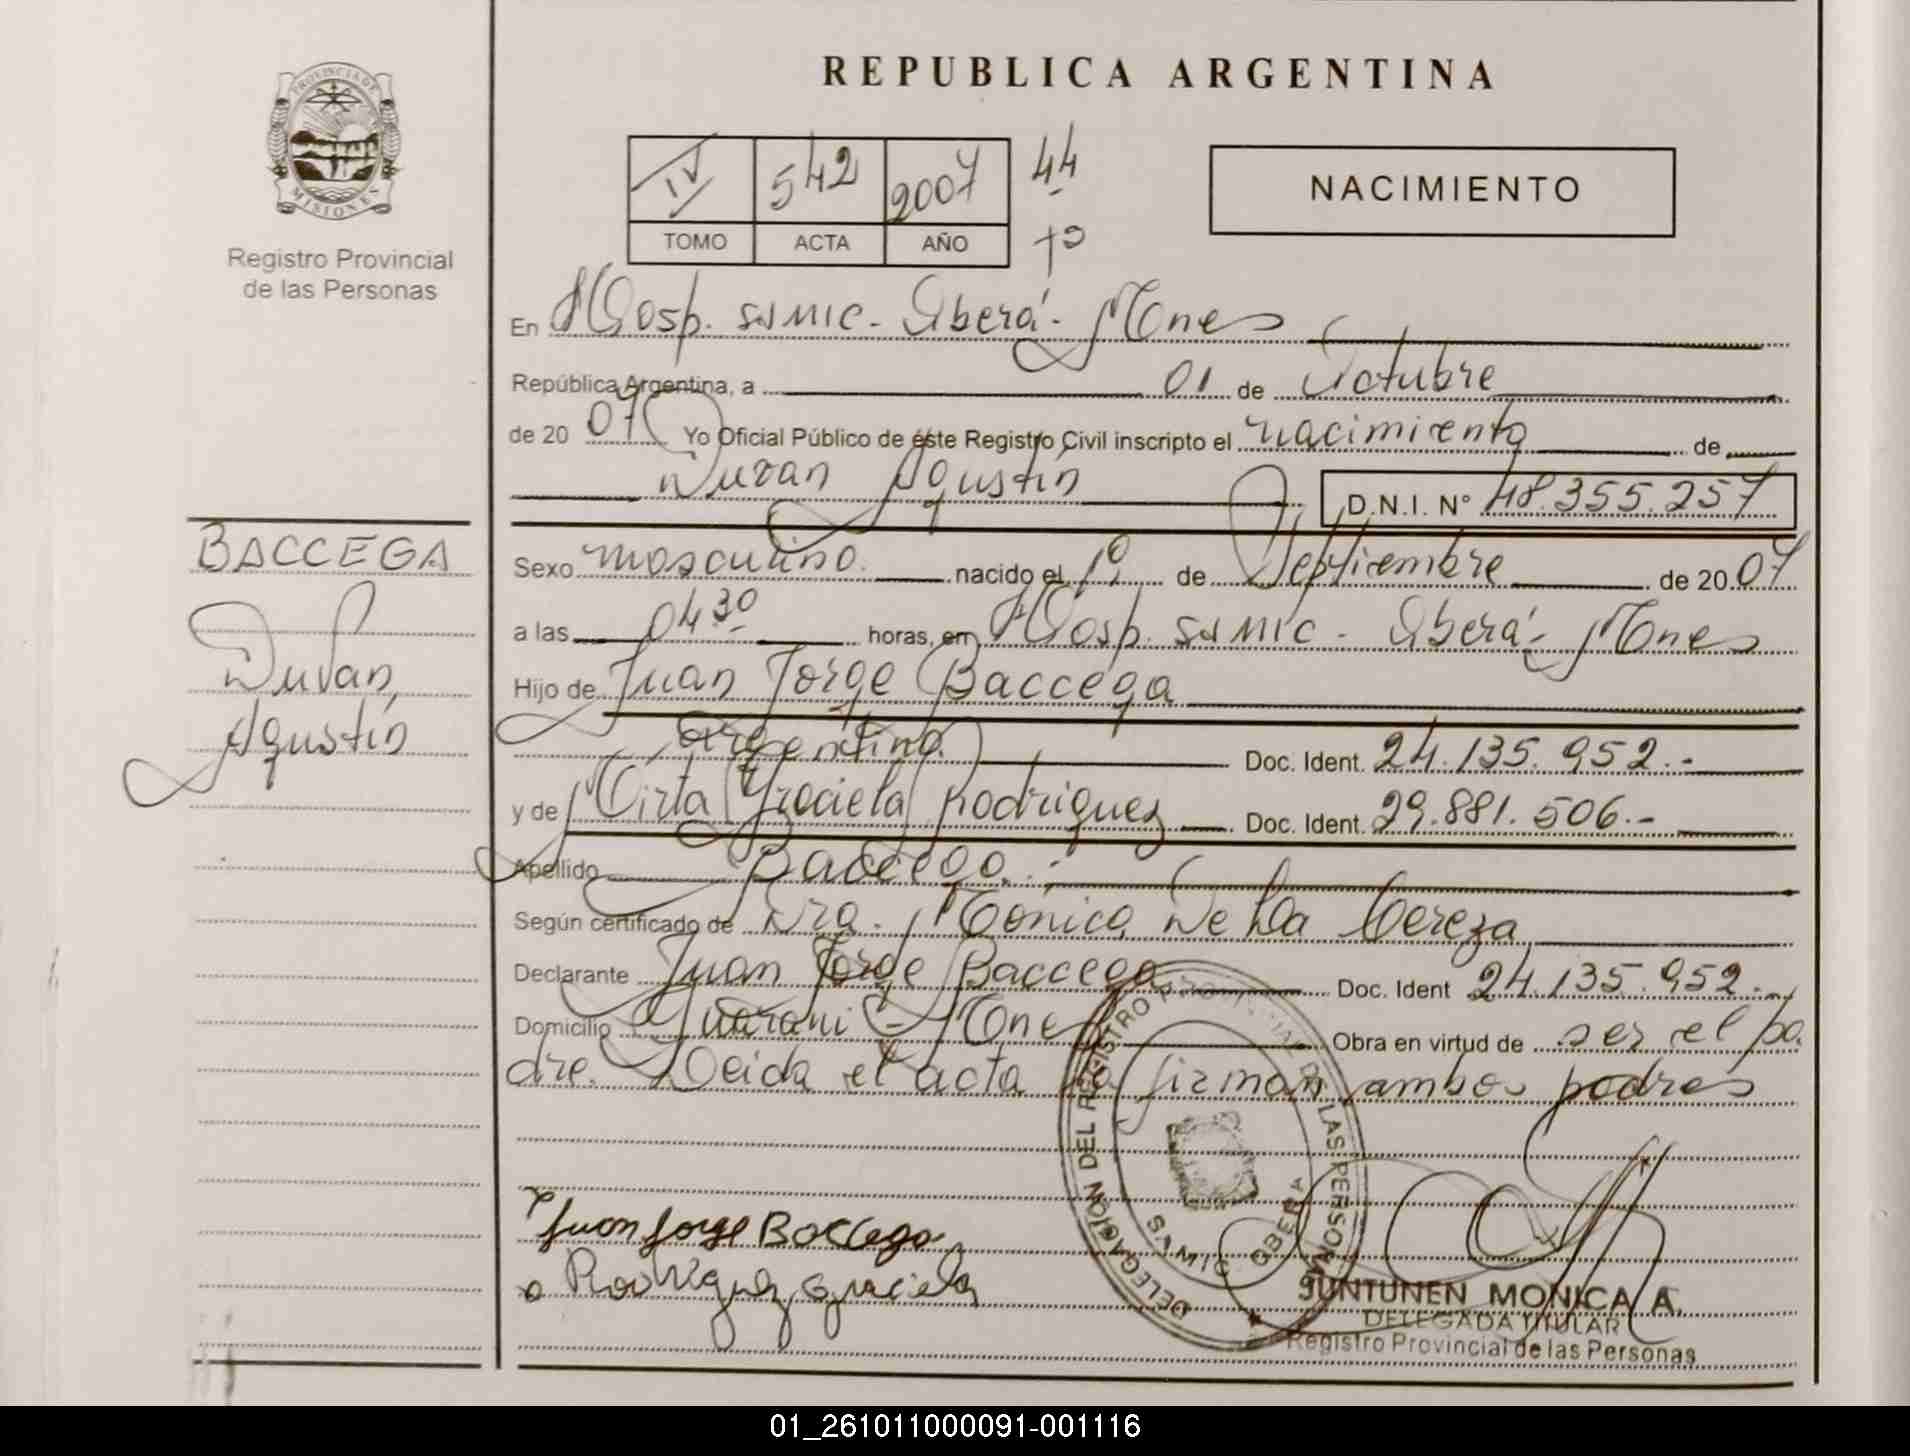 PROVINCIA DE
MISIONES
Registro Provincial
de las Personas
REPUBLICA ARGENTINA
IV 542 2007 44
TOMO ACTA AÑO fº
NACIMIENTO
En Hosp. SAMIC - Oberá - Mnes
República Argentina, a 01 de Octubre
de 2007 Yo Oficial Público de éste Registro Civil inscripto el nacimiento de
Duvan Agustín D.N.I. Nº 48.355.257
Sexo masculino. nacido el 1º de Septiembre de 2007
a las 04 30 horas, en Hosp. SAMIC - Oberá - Mnes
Hijo de Juan Jorge Baccega
argentina Doc. Ident. 24.135.952.-
y de Mirta Graciela Rodriguez Doc. Ident. 29.881.506.-
Apellido Baccega.-
Según certificado de Dra. Mónica De La Cereza
Declarante Juan Jorge Baccega Doc. Ident 24.135.952.-
Domicilio Guaraní - Mnes Obra en virtud de ser el pa
dre. Leida el acta la firman ambos padres
BACCEGA
Duvan,
Agustín
Juan Jorge Baccega
Rodriguez Graciela
DELEGACION DEL REGISTRO PROVINCIAL DE LAS PERSONAS
SAMIC OBERA
JUNTUNEN MONICA A.
DELEGADA TITULAR
Registro Provincial de las Personas
01_261011000091-001116